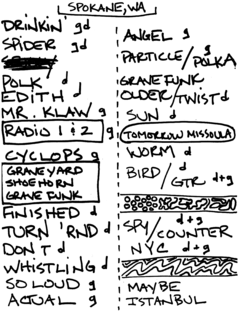 SPOKANE, WA
DRINKIN' gd
SPIDER gd
POLK d
EDITH d
MR. KLAW g
RADIO 1 & 2 g
CYCLOPS g
GRAVEYARD
SHOEHORN
GRAVE FUNK
FINISHED d
TURN 'RND d
DON'T d
WHISTLING d
SO LOUD g
ACTUAL g
ANGEL g
PARTICLE/POLKA g
GRAVE FUNK
OLDER/TWIST d
SUN d
TOMORROW MISSOULA
WORM d
BIRD/GTR d+g
SPY/COUNTER d+g
NYC d+g
MAYBE
ISTANBUL